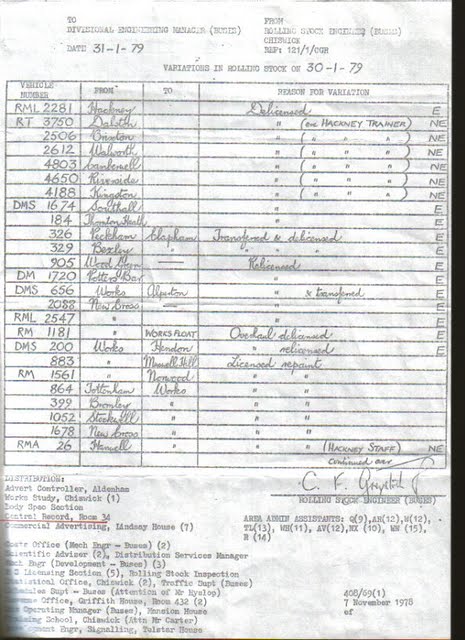 TO FROM
DIVISIONAL ENGINEERING MANAGER (BUSES) ROLLING STOCK ENGINEER (BUSES)
CHISWICK
DATE 31-1-79 REF: 121/1/CGR
VARIATIONS IN ROLLING STOCK ON 30-1-79
VEHICLE NUMBER FROM TO REASON FOR VARIATION
RML 2281 Hackney Delicensed E
RT 3750 Dalston " (ex HACKNEY TRAINER) NE
2506 Brixton " ( " " " ) NE
2612 Walworth " ( " " " ) NE
4803 Camberwell " ( " " " ) NE
4650 Riverside " ( " " " ) NE
4188 Kingston " ( " " " ) NE
DMS 1674 Southall " E
184 Thornton Heath " E
326 Peckham Clapham Transferred & delicensed E
329 Bexley — " E
905 Wood Green — Relicensed E
DM 1720 Potters Bar " E
DMS 656 Works Alperton " & transferred E
2088 New Cross — " E
RML 2547 " " E
RM 1181 " WORKS FLOAT Overhaul delicensed E
DMS 200 Works Hendon " relicensed E
883 " Muswell Hill Licensed repaint
RM 1561 " Norwood " "
864 Tottenham Works " "
399 Bromley " " "
1052 Stockwell " " "
1678 New Cross " " "
RMA 26 Hanwell " " (HACKNEY STAFF) NE
continued over
DISTRIBUTION:
Advert Controller, Aldenham
Works Study, Chiswick (1)
Body Spec Section
Central Record, Room 34
Commercial Advertising, Lindsay House (7)
ROLLING STOCK ENGINEER (BUSES)
AREA ADMIN ASSISTANTS: Q(9), AH(12), W(12),
TL(13), WH(11), AV(12), NX (10), WN (15),
R (14)
Officer (Mech Engr - Buses) (2)
Scientific Adviser (2), Distribution Services Manager
Mech Engr (Development - Buses) (3)
Licensing Section (5), Rolling Stock Inspection
Statistical Office, Chiswick (2), Traffic Supt (Buses)
Schedules Supt - Buses (Attention of Mr Hyslop)
Office, Griffith House, Room 432 (2)
Operating Manager (Buses), Mansion House
Training School, Chiswick (Attn Mr Carter)
Engr, Signalling, Telstar House
408/69(1)
7 November 1978
ef